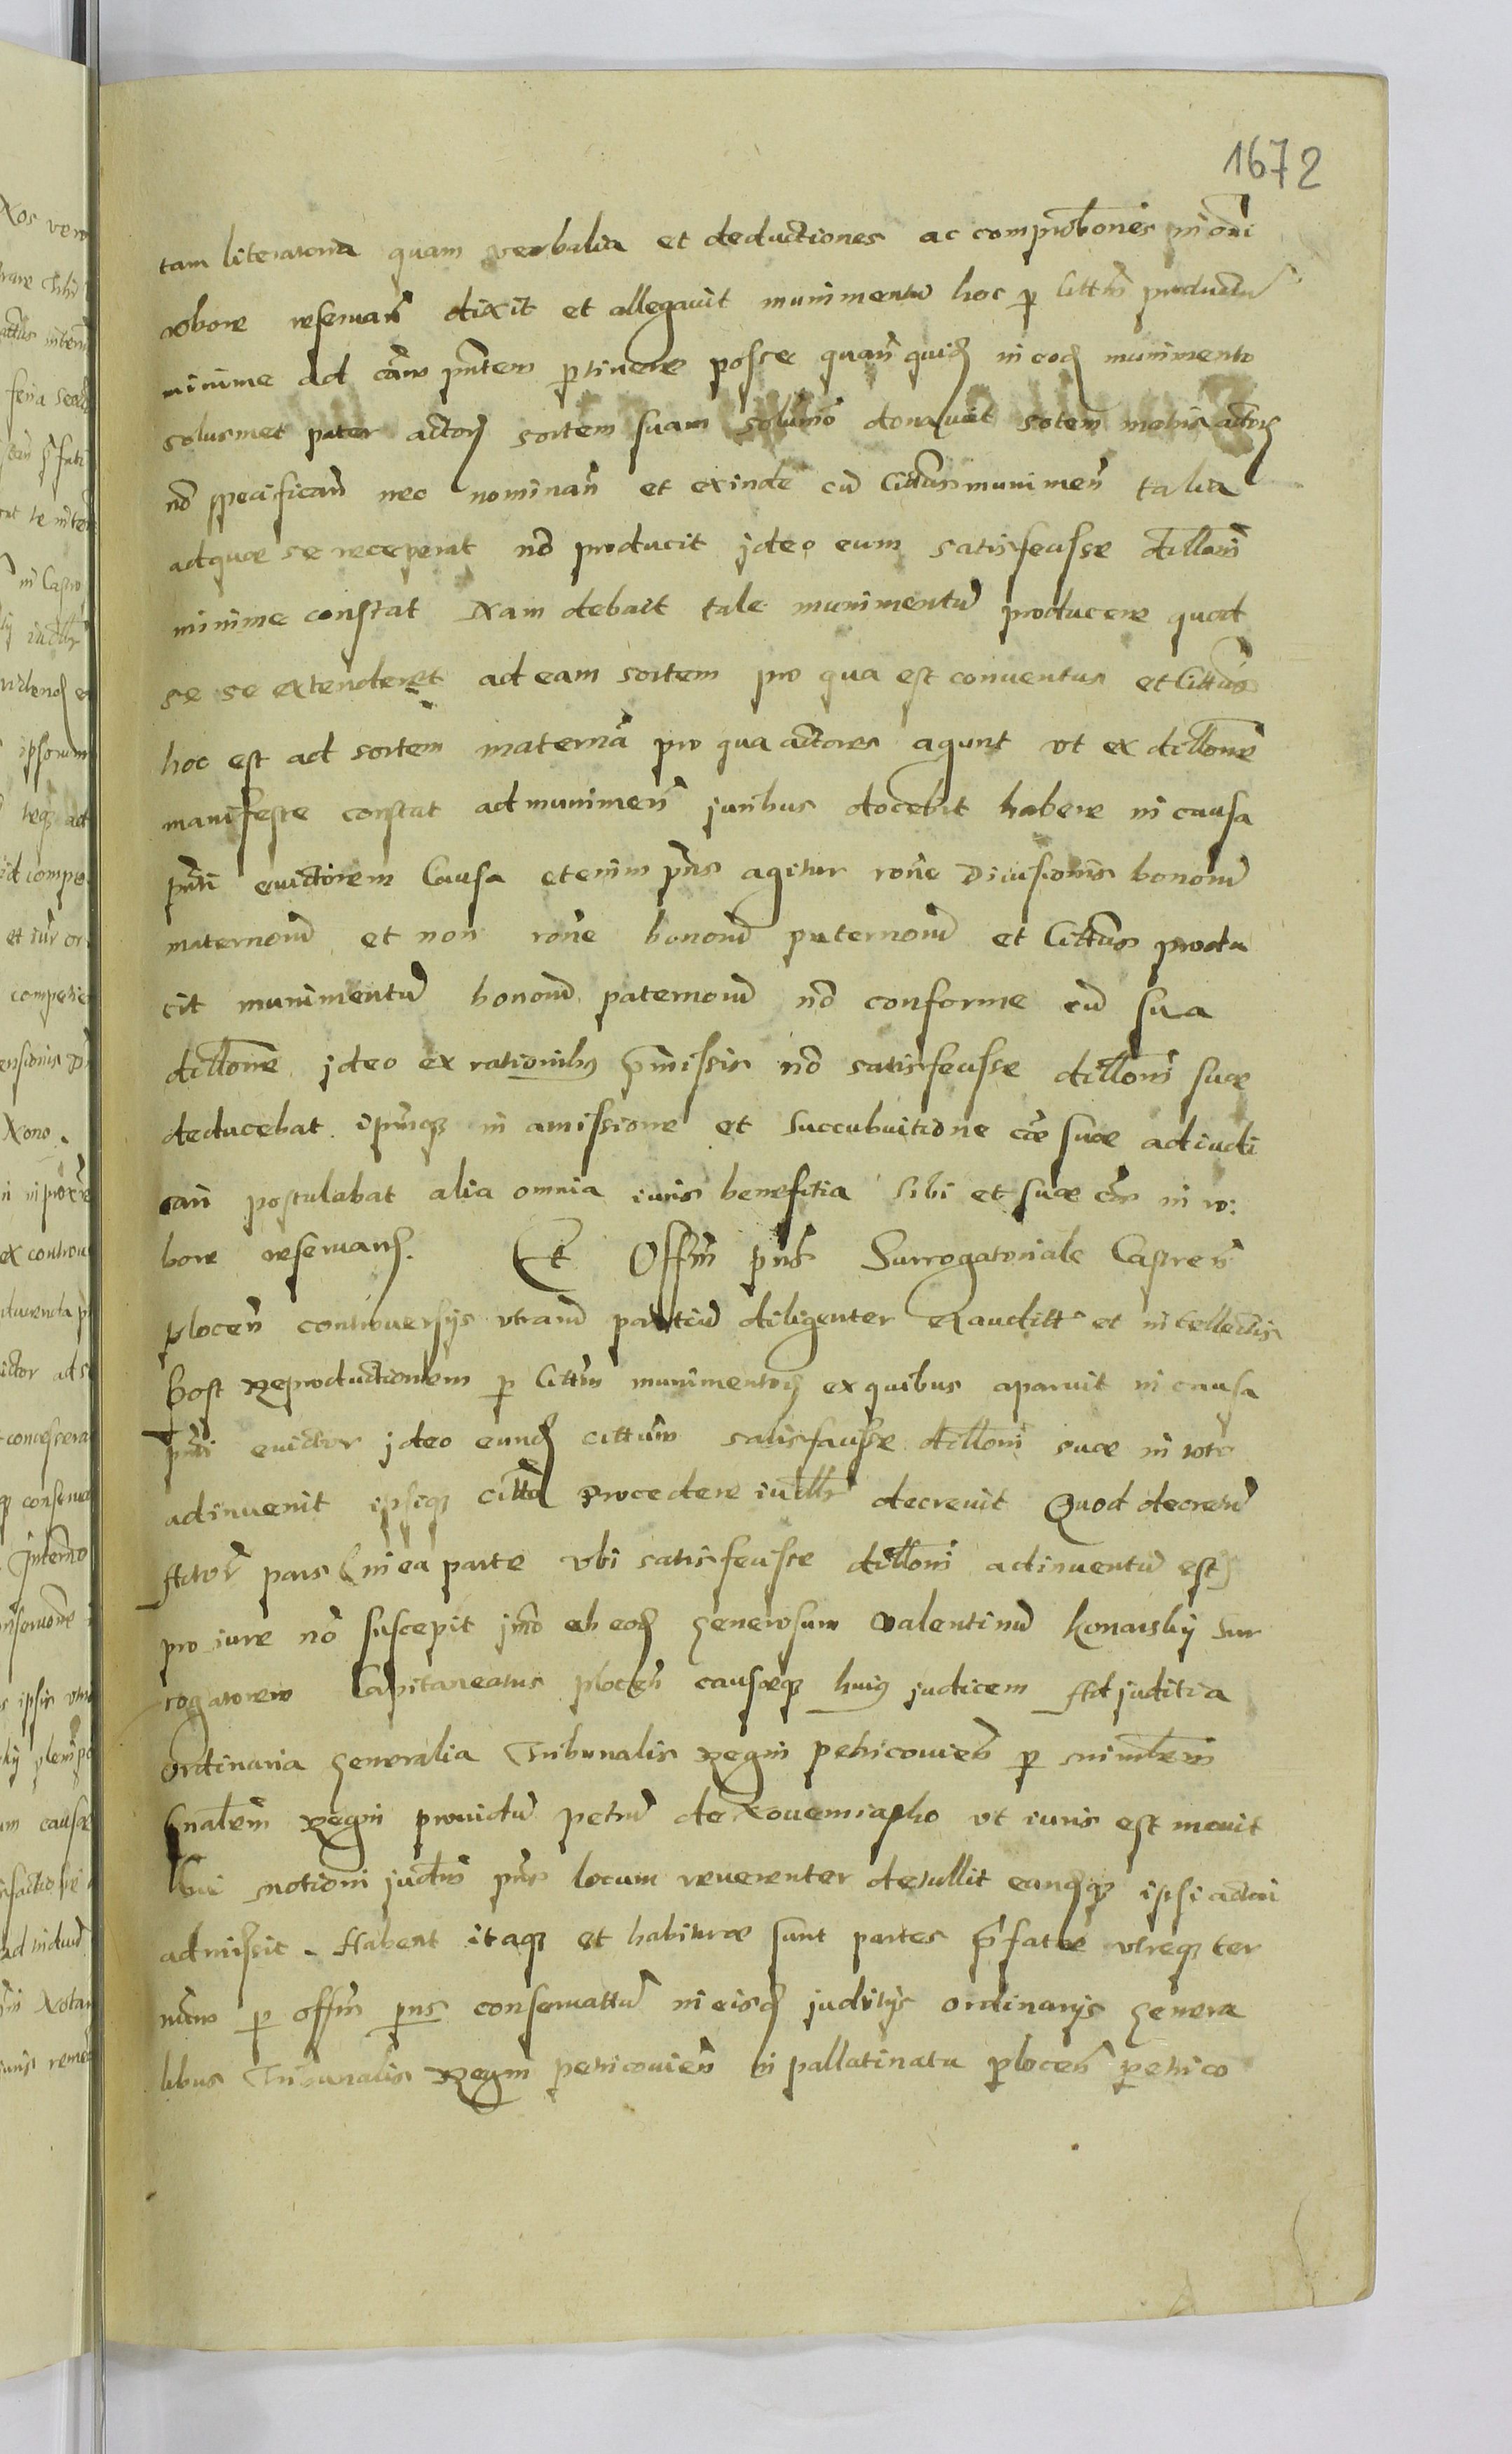 1672
tam literatoria quam verbalia et deductiones ac comprobones in oni
robore reseruan̄ dixit et allegauit munimentū hoc p citt̄m productū
minime ad cām pn̄tem ptinere posse quan̄ quid in eod munimento
solusmet pater actorȝ sortem suam solūmō donauit sortem mat̄ris actorȝ
nō specifican̄ nec nominan̄ et exinde cū citt̄us munimen̄ talia
ad quae se receperat nō producit jdeo eum satisfecisse dillōni
minime constat Nam debuit tale munimentū producere quod
se se extenderet ad eam sortem pro qua est conuentus et citt̄us
hoc est ad sortem maternā pro qua actores agunt vt ex dillōne
manifeste constat ad munimen̄ juribus docebit habere in causa
pn̄ti euictorem Causa etenim pn̄s agitur rōne Diuisionis bonorū
maternorū et non rōne bonorū paternorū et Citt̄us produ
cit munimentū bonorū paternorū nō conforme cū sua
dillōne jdeo ex rationibȝ p̄missis nō satisfecisse dillōni suae
deducebat ip̄umqȝ in amissione et succubuitione cāe suae adiudi
cari postulabat alia omnia iuris benefitia sibi et suae cāe in ro:
bore reseruanȝ. Et Offm̄ pn̄s Surrogatoriale Castren̄
plocen̄ controuersijs vtrarū partiū diligenter exauditt et intellectis
Post Reproductionem p citt̄m munimentorȝ ex quibus aparuit in causa
pn̄ti euictor jdeo eund cittum satisfecisse dillōni suae in toto
adinuenit ipsiqȝ citt̄o procedere iudlr̄ decreuit Quod decretū
Actor̄ pars (in ea parte vbi satisfecisse dillōni adinuentū est)
pro iure nō suscepit jmō ab eod generosum Valentinū Konarskij Sur
rogatorem Capitaneatus plocen̄ causaeqȝ huiȝ judicem Ad juditia
ordinaria generalia Tribunalis Regni petricouien̄ p ministerīm
Gnalem Regni prouidū petrū de Nouemiasto vt iuris est mouit
Cui motioni judm̄ pn̄s locum reuerenter detullit eandqȝ ipsi actori
admissit. Habent itaqȝ et habiturae sunt partes p̄fatae vtreqȝ ter
minū p offm̄ pn̄s conseruattū in eisd juditijs ordinarijs genera
libus Tribunalis Regni petricouien̄ in pallatinatu plocen̄ petrico